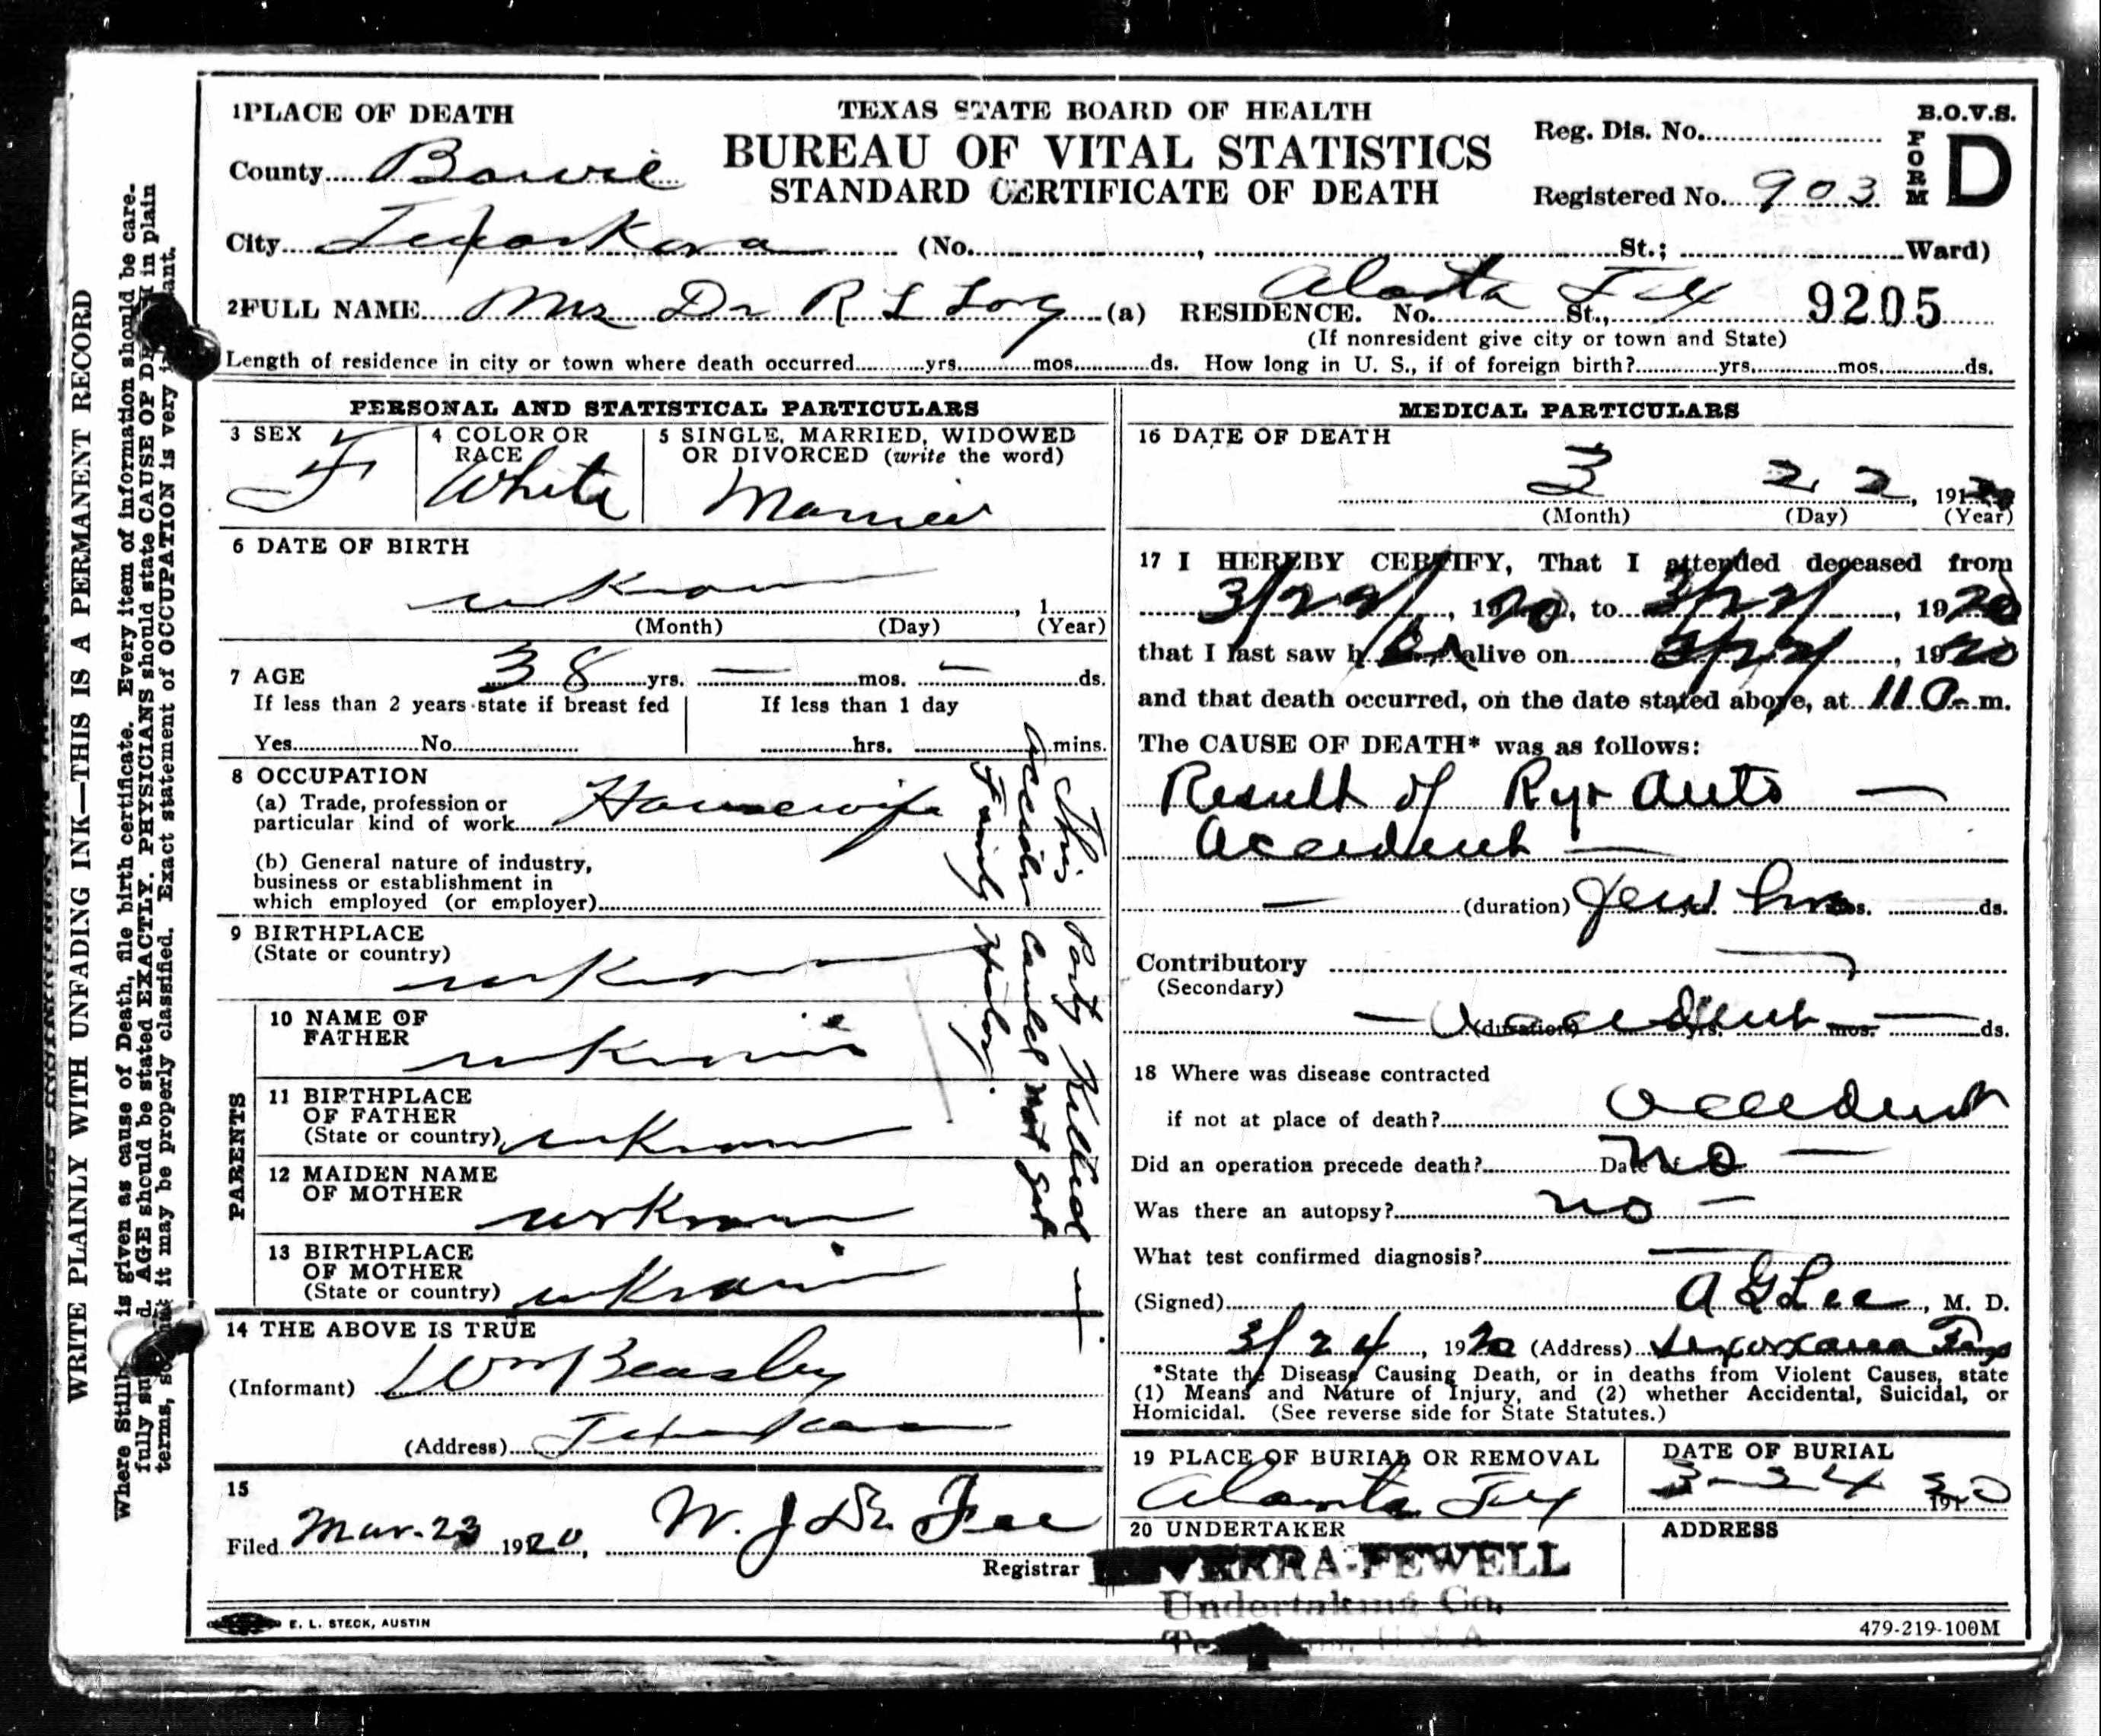 1 PLACE OF DEATH
TEXAS STATE BOARD OF HEALTH
BUREAU OF VITAL STATISTICS
STANDARD CERTIFICATE OF DEATH
B.O.V.S.
FORM D
Reg. Dis. No.
County Bowie
Registered No. 903
City Texarkana (No. , St.; Ward)
2 FULL NAME Mrs Dr R L Long (a) RESIDENCE. No. St., Tex 9205
(If nonresident give city or town and State)
Length of residence in city or town where death occurred yrs. mos. ds. How long in U. S., if of foreign birth? yrs. mos. ds.
PERSONAL AND STATISTICAL PARTICULARS
3 SEX
F
4 COLOR OR RACE
White
5 SINGLE, MARRIED, WIDOWED
OR DIVORCED (write the word)
Married
6 DATE OF BIRTH
unknown , 1
(Month) (Day) (Year)
7 AGE 38 yrs. — mos. — ds.
If less than 2 years state if breast fed
If less than 1 day
Yes No
hrs. mins.
8 OCCUPATION
(a) Trade, profession or
particular kind of work Housewife
(b) General nature of industry,
business or establishment in
which employed (or employer)
This Party Killed —
accident could not get
Family
9 BIRTHPLACE
(State or country)
unknown
PARENTS
10 NAME OF
FATHER
unknown
11 BIRTHPLACE
OF FATHER
(State or country) unknown
12 MAIDEN NAME
OF MOTHER
unknown
13 BIRTHPLACE
OF MOTHER
(State or country) unknown
14 THE ABOVE IS TRUE
(Informant) Wm Beasley
(Address) Texarkana
15
Filed Mar. 23 1920, W. J.
Registrar
E. L. STECK, AUSTIN
MEDICAL PARTICULARS
16 DATE OF DEATH
3 22, 191
(Month) (Day) (Year)
17 I HEREBY CERTIFY, That I attended deceased from
3/22/, 1920, to 3/22/, 1920
that I last saw her alive on 3/22/, 1920
and that death occurred, on the date stated above, at 11 m.
The CAUSE OF DEATH* was as follows:
Result of Ry + Auto —
Accident —
— (duration) few hrs mos. ds.
Contributory
(Secondary)
— Accident — (duration) yrs. mos. ds.
18 Where was disease contracted
if not at place of death? accident
Did an operation precede death? Date No —
Was there an autopsy? no —
What test confirmed diagnosis?
(Signed) A G Lee, M. D.
3/24, 1920 (Address) Texarkana Texas
*State the Disease Causing Death, or in deaths from Violent Causes, state
(1) Means and Nature of Injury, and (2) whether Accidental, Suicidal, or
Homicidal. (See reverse side for State Statutes.)
19 PLACE OF BURIAL OR REMOVAL
Tex
DATE OF BURIAL
3-24 20
20 UNDERTAKER
FEWELL
Undertaking Co.
ADDRESS
479-219-100M
WRITE PLAINLY WITH UNFADING INK—THIS IS A PERMANENT RECORD
Where Stillb is given as cause of Death, file birth certificate. Every item of information should be care-
fully d. AGE should be stated EXACTLY. PHYSICIANS should state CAUSE OF DEATH in plain
terms, so it may be properly classified. Exact statement of OCCUPATION is very